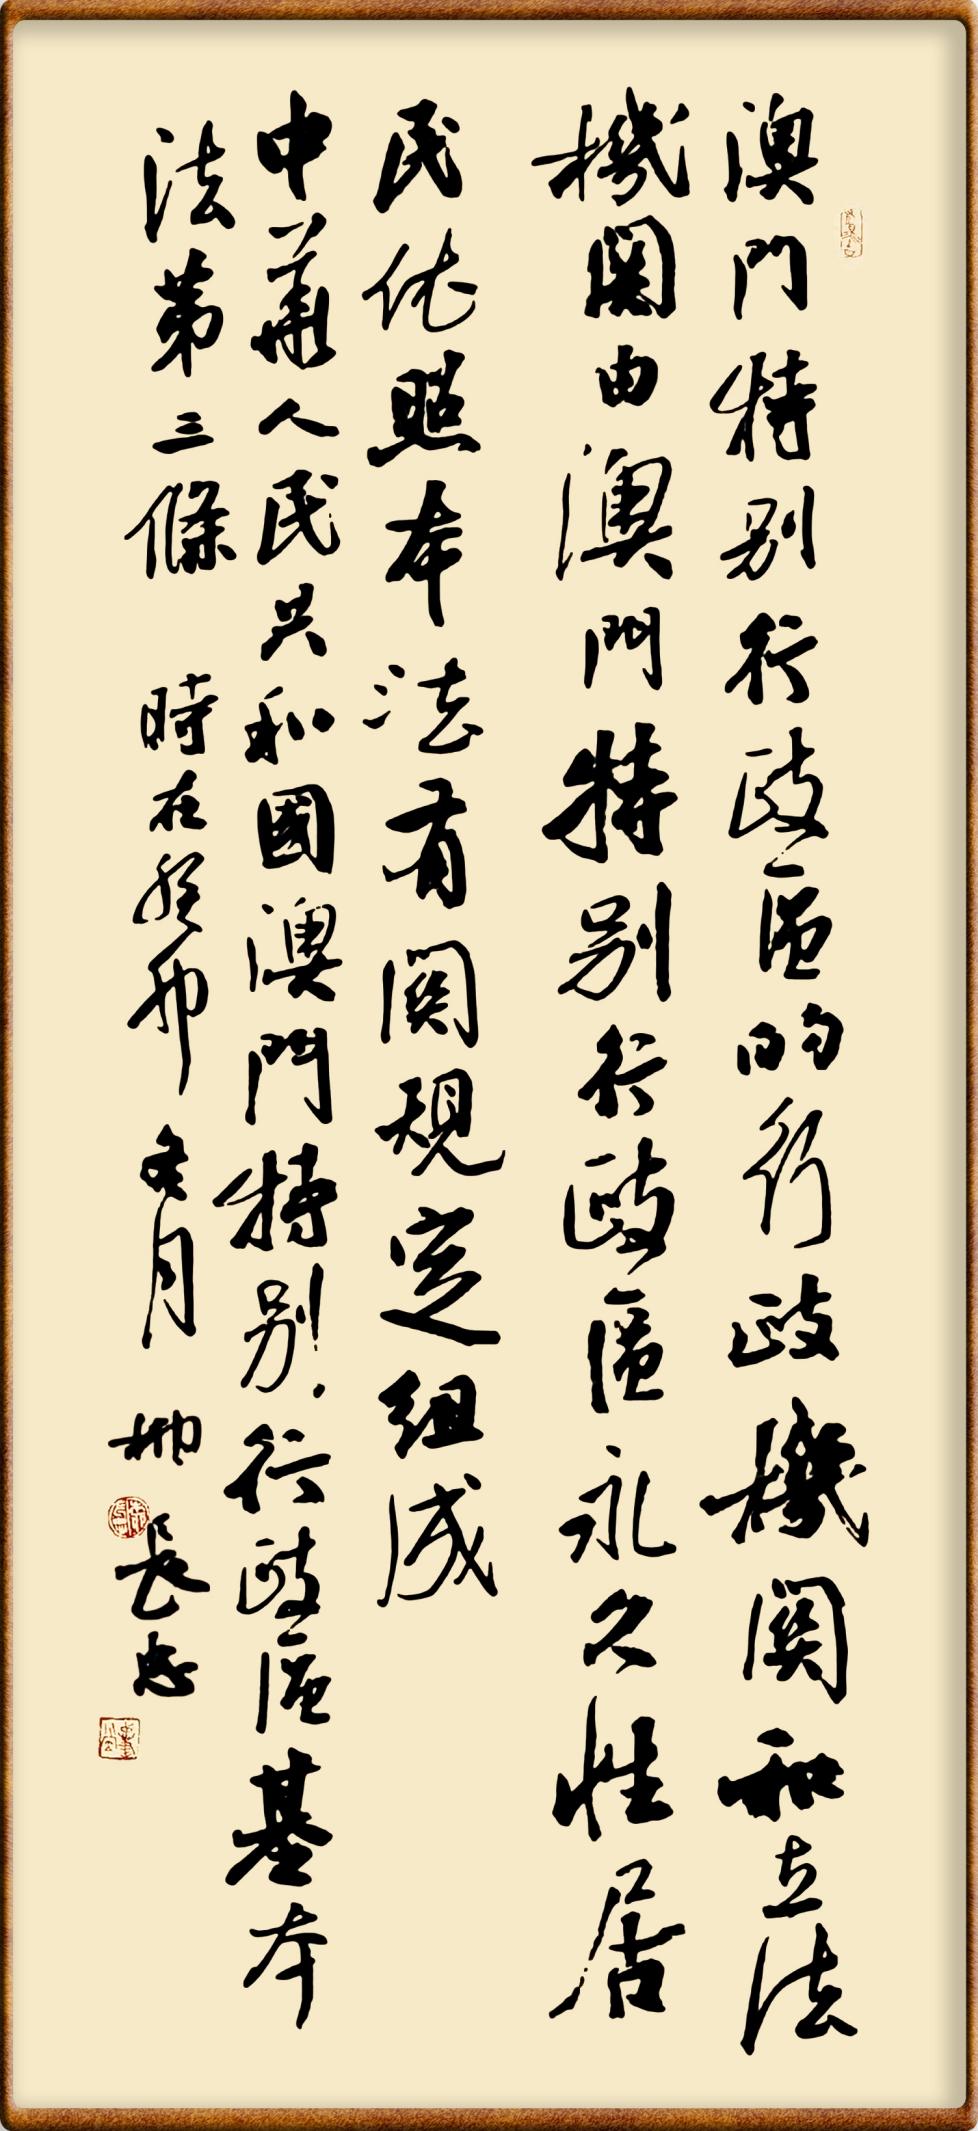 澳門特别行政區的行政機関和立法
機関由澳門特别行政區永久性居
民依照本法有関規定組成
中華人民共和國澳門特别行政區基本
法第三條 時在癸卯冬月 柳長忠